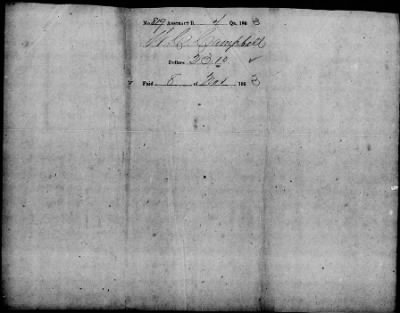 No. 819 Abstract B. 4 Qr. 186 3
W. C. Campbell
Dollars 23.10 ✓
Paid 8 of Nov 186 3